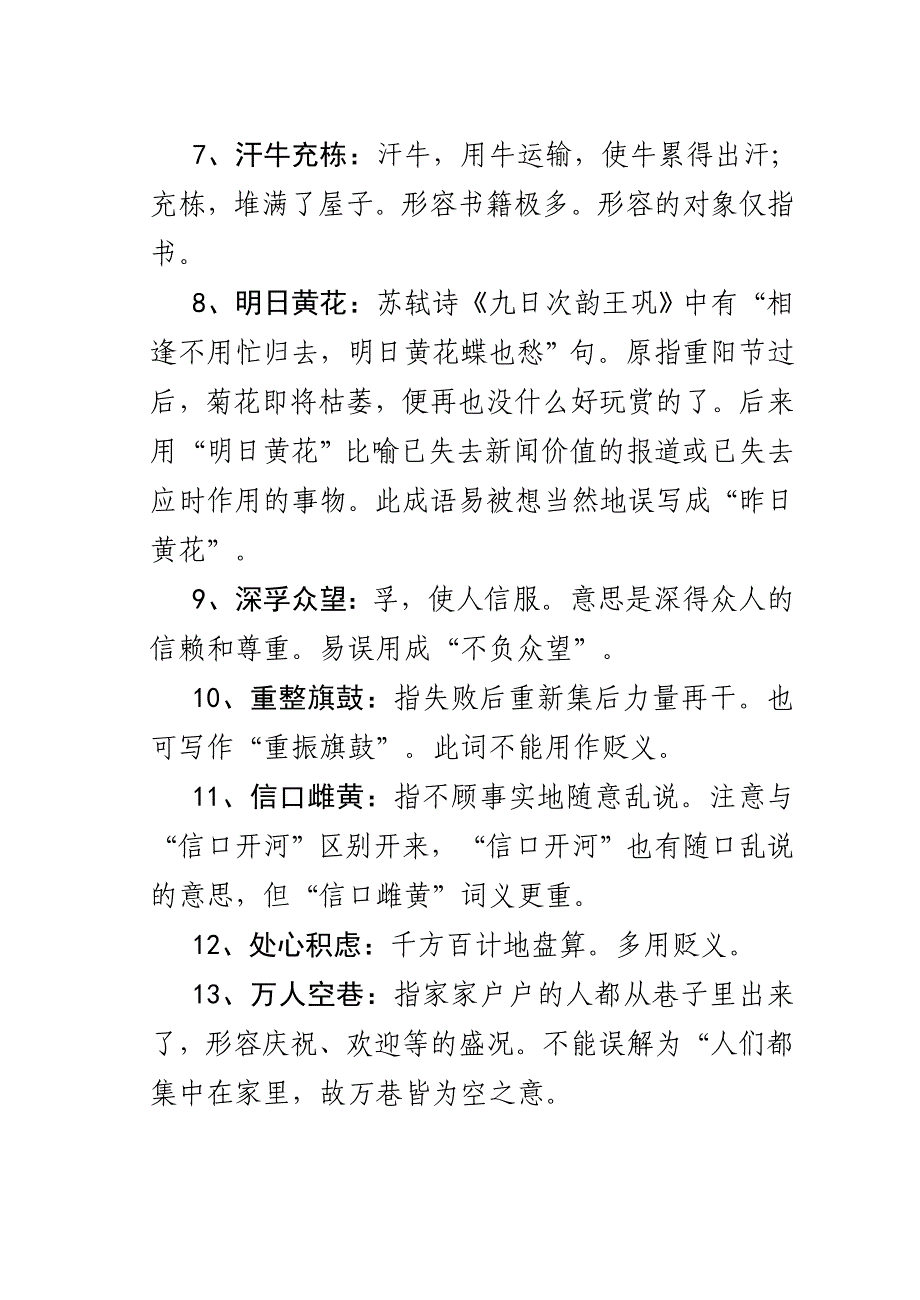 7、汗牛充栋：汗牛，用牛运输，使牛累得出汗；
充栋，堆满了屋子。形容书籍极多。形容的对象仅指
书。
8、明日黄花：苏轼诗《九日次韵王巩》中有“相
逢不用忙归去，明日黄花蝶也愁”句。原指重阳节过
后，菊花即将枯萎，便再也没什么好玩赏的了。后来
用“明日黄花”比喻已失去新闻价值的报道或已失去
应时作用的事物。此成语易被想当然地误写成“昨日
黄花”。
9、深孚众望：孚，使人信服。意思是深得众人的
信赖和尊重。易误用成“不负众望”。
10、重整旗鼓：指失败后重新集后力量再干。也
可写作“重振旗鼓”。此词不能用作贬义。
11、信口雌黄：指不顾事实地随意乱说。注意与
“信口开河”区别开来，“信口开河”也有随口乱说
的意思，但“信口雌黄”词义更重。
12、处心积虑：千方百计地盘算。多用贬义。
13、万人空巷：指家家户户的人都从巷子里出来
了，形容庆祝、欢迎等的盛况。不能误解为“人们都
集中在家里，故万巷皆为空之意。